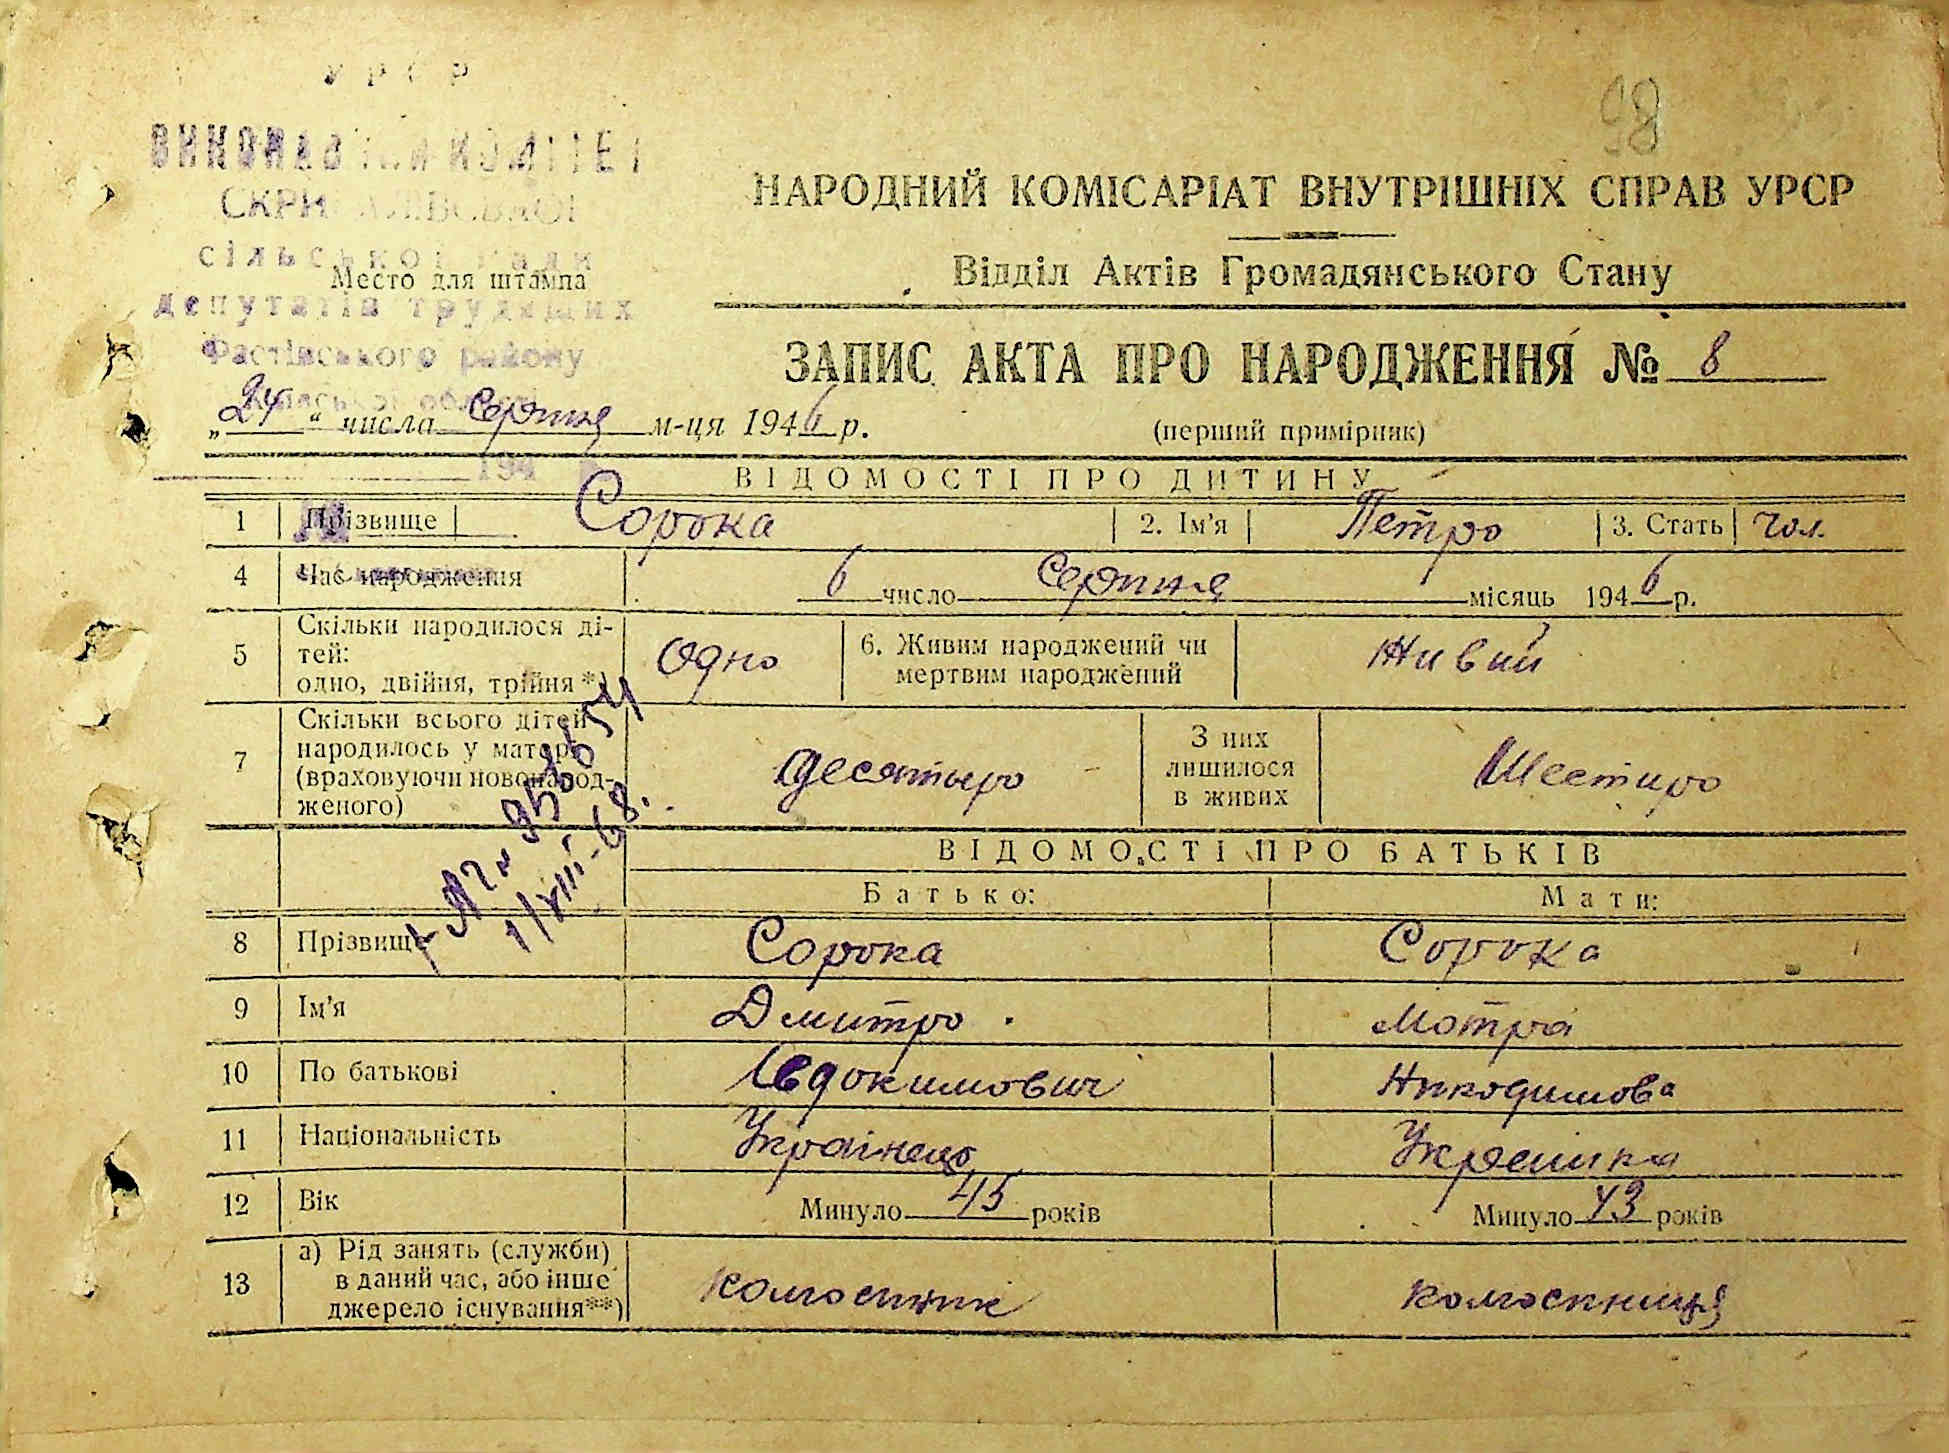 УРСР
98
ВИКОНАВЧИЙ КОМІТЕТ
СКРИГАЛІВСЬКОЇ
сільської ради
Место для штампа
депутатів трудящих
Фастівського району
Київської області
194
НАРОДНИЙ КОМІСАРІАТ ВНУТРІШНІХ СПРАВ УРСР
Відділ Актів Громадянського Стану
ЗАПИС АКТА ПРО НАРОДЖЕННЯ № 8
„24“ числа серпня м-ця 1946 р.
(перший примірник)
ВІДОМОСТІ ПРО ДИТИНУ
1 Прізвище Сорока 2. Ім'я Петро 3. Стать чол.
4 Час народження 6 число серпня місяць 1946 р.
5 Скільки народилося ді-
тей:
одно, двійня, трійня*) Одно 6. Живим народжений чи
мертвим народжений Живий
7 Скільки всього дітей
народилось у матері
(враховуючи новонарод-
женого) десятыро З них
лишилося
в живих Шестиро
1/VIII-68.
ВІДОМОСТІ ПРО БАТЬКІВ
Батько: Мати:
8 Прізвище Сорока Сорока
9 Ім'я Дмитро Мотра
10 По батькові Євдокимович Никодимова
11 Національність Українець Українка
12 Вік Минуло 45 років Минуло 43 років
13 а) Рід занять (служби)
в даний час, або інше
джерело існування**) колгоспник колгоспниця